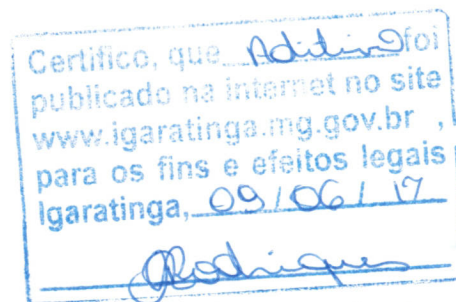 Certifico, que Aditivo foi
publicado na internet no site
www.igaratinga.mg.gov.br ,
para os fins e efeitos legais
Igaratinga, 09/06/17
Rodrigues